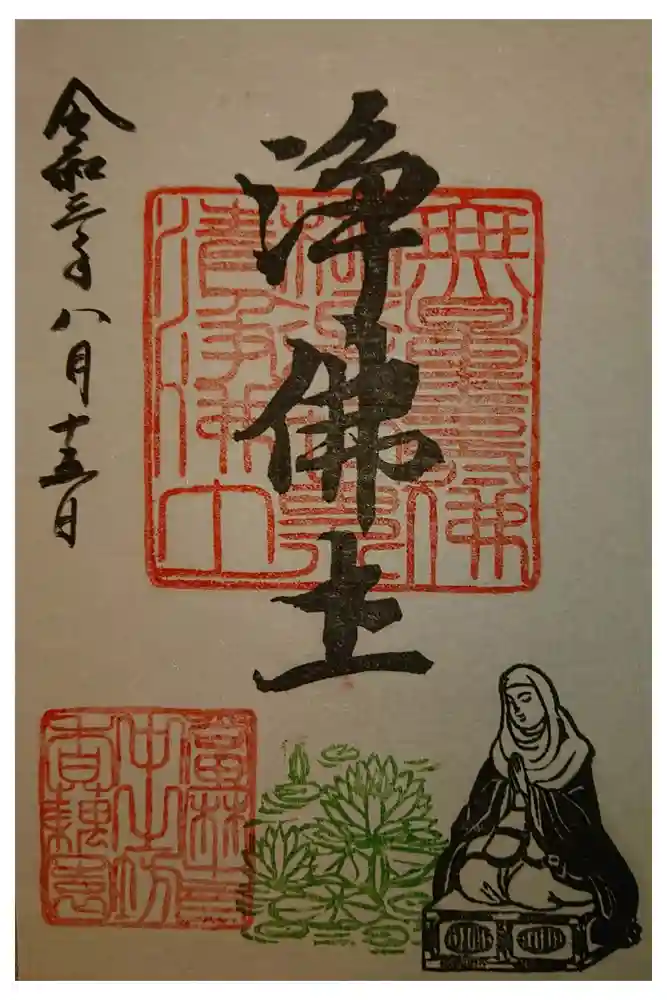 浄佛土
令和三年八月十五日
無量壽佛
當麻寺
中之坊